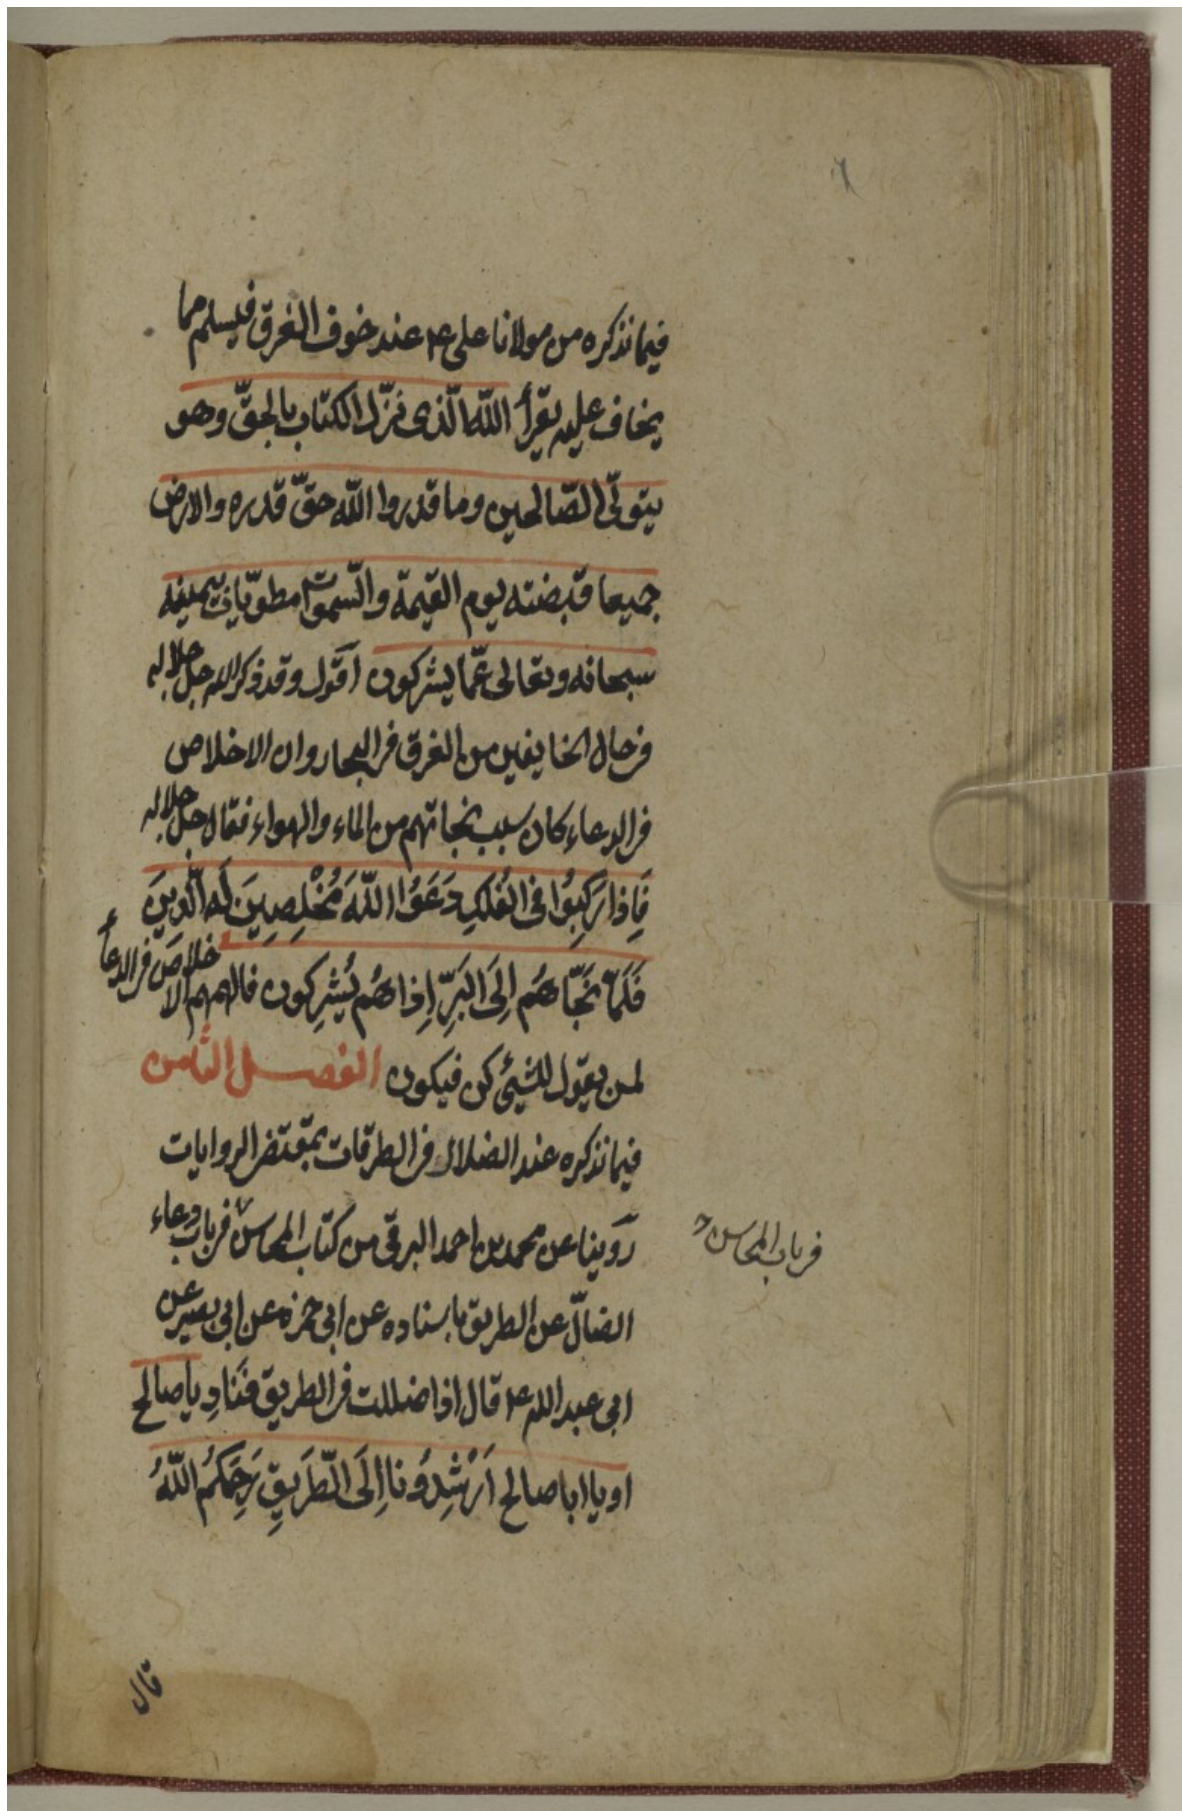 فيما نذكره من مولانا على ع عند خوف الغرق فيسلم مما
يخاف عليه يقرأ اللّه الّذى نزّل الكتاب بالحقّ وهو
يتولّى الصّالحين وما قدروا اللّه حقّ قدره والارض
جميعا قبضته يوم القيمة والسّموات مطويّات بيمينه
سبحانه وتعالى عمّا يشركون اقول وقد ذكر الله جل جلاله
فى حال الخايفين من الغرق فى البحار وان الاخلاص
فى الدعاء كان سبب نجاتهم من الماء والهواء فقال جل جلاله
فَاِذا رَكِبُوا فى الفُلكِ دَعَوُا اللّهَ مُخْلِصِينَ لَه الّدينَ
فَلَمّا نَجّاهُم اِلَى البَرِّ اِذا هُم يُشرِكون فالهمهم الاخلاص فى الدعاء
لمن يقول للشيئ كن فيكون الفصل الثامن
فيما نذكره عند الضلال فى الطرقات بمقتضى الروايات
رَوينا عن محمد بن احمد البرقى من كتاب المحاسن فى باب دعاء
فى باب المحاسن
الضالّ عن الطريق باسناده عن ابى حمزه عن ابى بصير عن
ابى عبد الله ع قال اذا ضللت فى الطريق فنَادِ يا صالح
او يا ابا صالح اَرْشِدُونا اِلَى الّطَريقِ رَحِمَكُم اللّهُ
قال